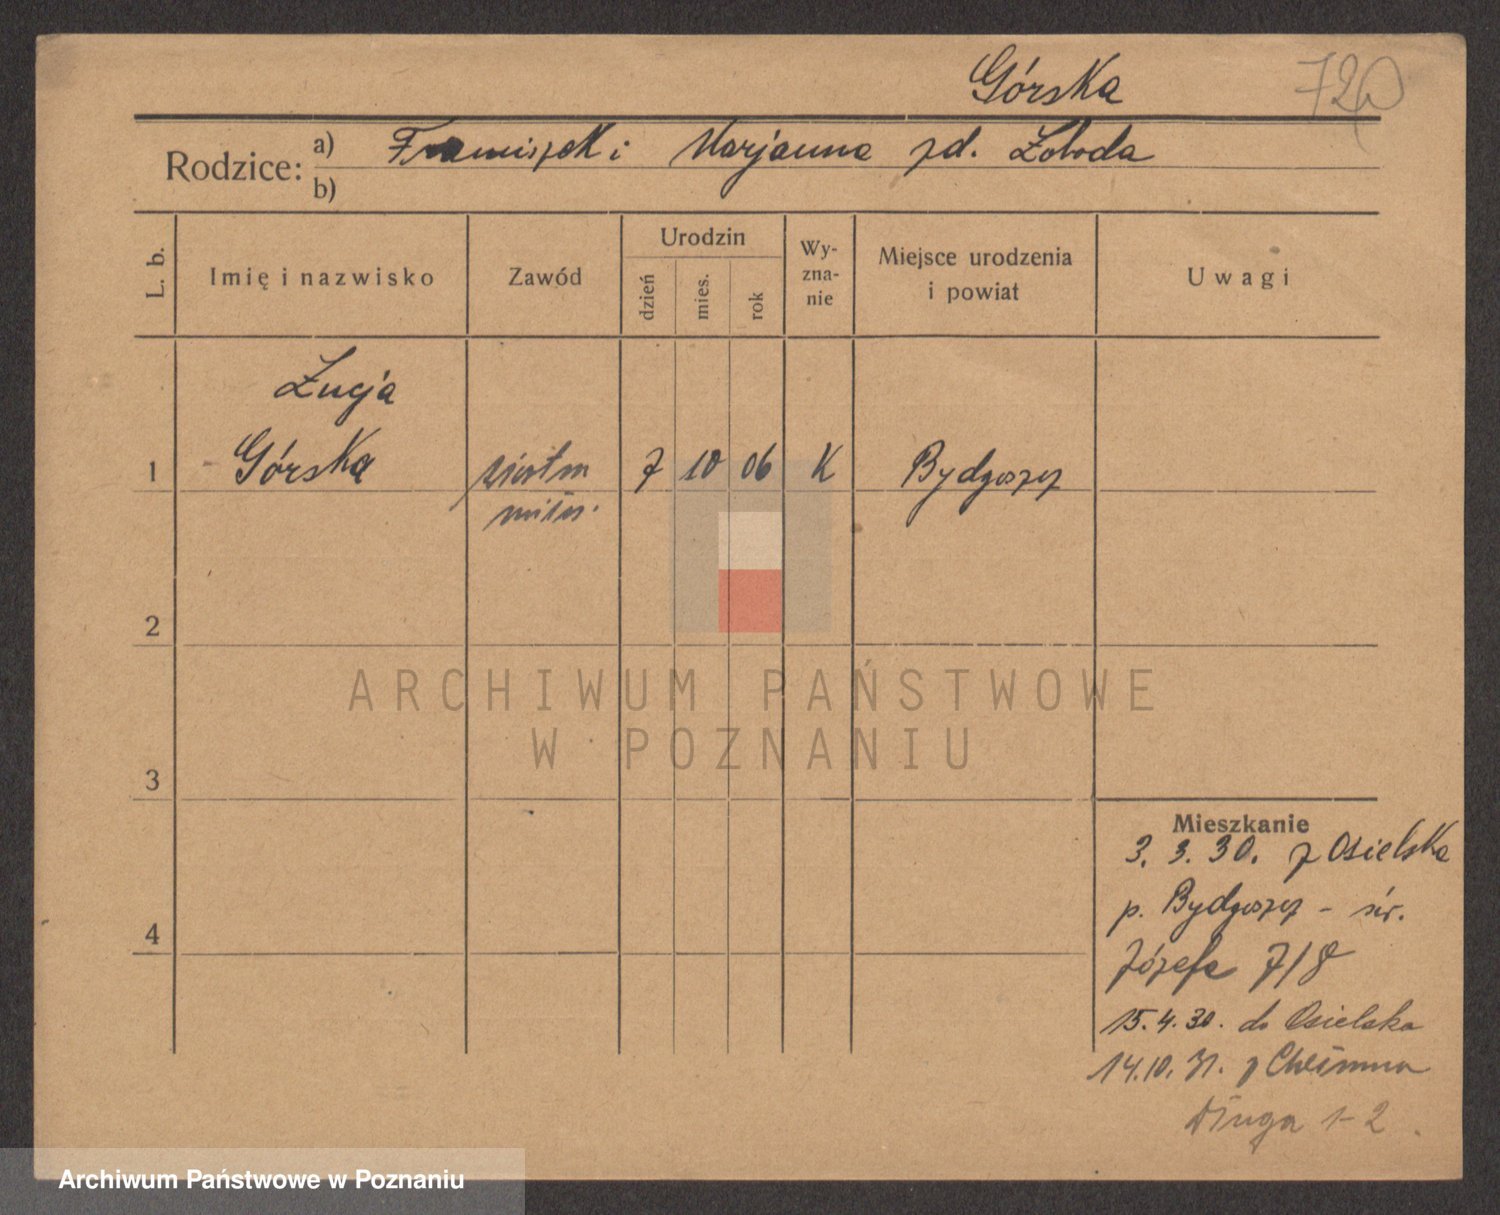 Górska 720
Rodzice: a) Franciszek i Marjanna zd. Łoboda
b)
L. b. Imię i nazwisko Zawód Urodzin dzień mies. rok Wyznanie Miejsce urodzenia i powiat Uwagi
Łucja
1 Górska 7 10 06 K Bydgoszcz
2
3
4
Mieszkanie
3. 3. 30. z Osielska
p. Bydgoszcz - św.
Józefa 7/8
15.4.30. do Osielska
14.10.31. z Chełmna
Długa 1-2
ARCHIWUM PAŃSTWOWE
W POZNANIU
Archiwum Państwowe w Poznaniu